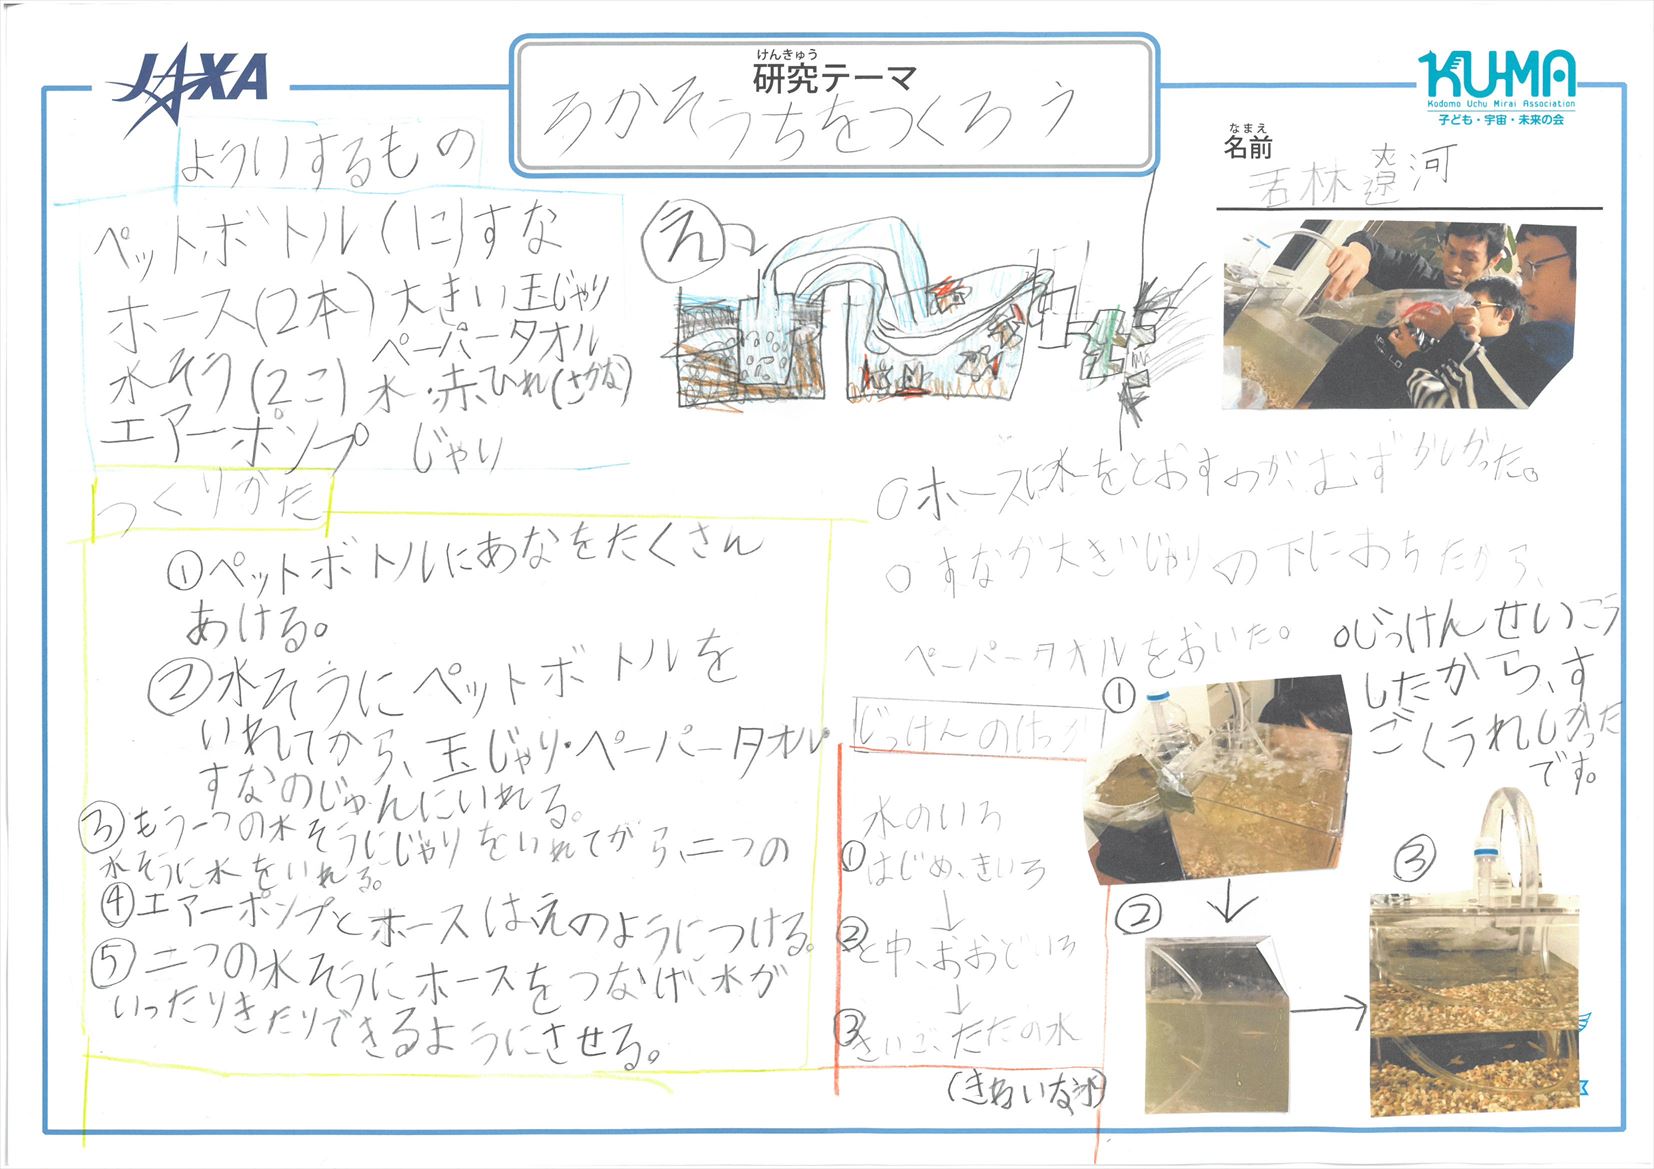 JAXA
けんきゅう
研究テーマ
ろかそうちをつくろう
KUMA
Kodomo Uchu Mirai Association
子ども・宇宙・未来の会
なまえ
名前
若林遼河
よういするもの
ペットボトル(に)すな
ホース(2本)大きい玉じゃり
水そう(2こ)ペーパータオル
水・赤ひれ(さかな)
エアーポンプ じゃり
え
つくりかた
①ペットボトルにあなをたくさん
あける。
②水そうにペットボトルを
いれてから、玉じゃり・ペーパータオル・
すなのじゅんにいれる。
③もう一つの水そうにじゃりをいれてから、二つの
水そうに水をいれる。
④エアーポンプとホースは、えのようにつける。
⑤二つの水そうにホースをつなげ、水が
いったりきたりできるようにさせる。
○ホースに水をとおすのが、むずかしかった。
○すなが大きいじゃりの下におちたから、
ペーパータオルをおいた。
○じっけんせいこう
したから、す
ごくうれしかった
です。
じっけんのけっか
水のいろ
①はじめ、きいろ
↓
②と中、おおどいろ
↓
③さいご、ただの水
(きれいな水)
①
②
③